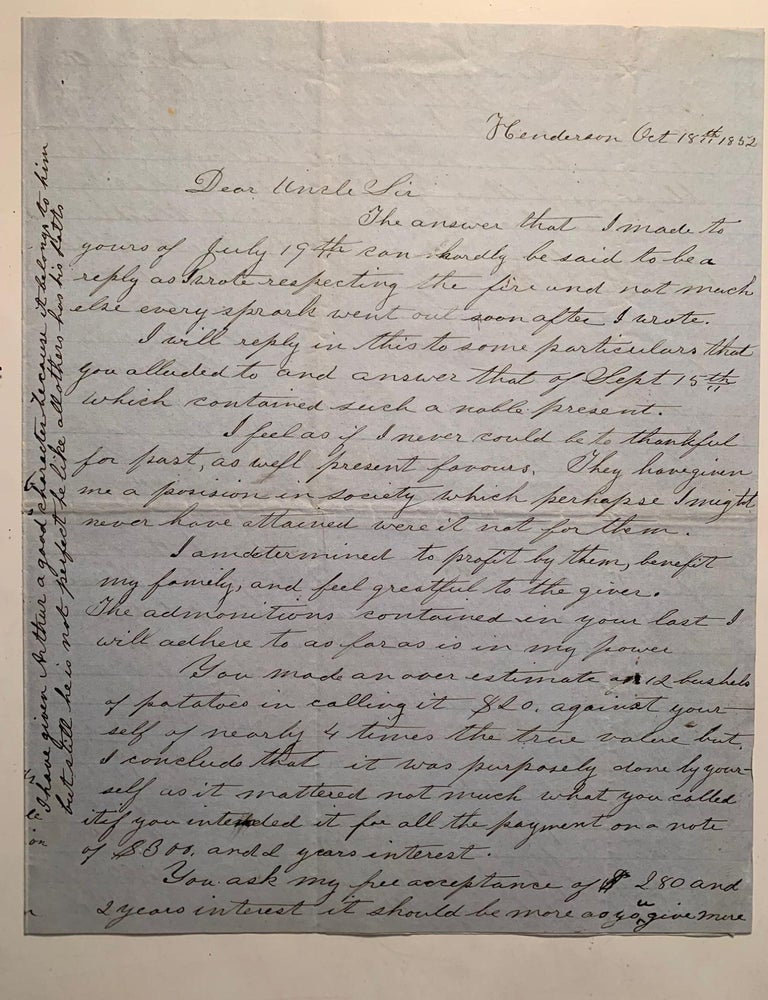 Henderson Oct 18th 1852
Dear Uncle Sir
The answer that I made to
yours of July 19th can hardly be said to be a
reply as I wrote respecting the fire and not much
else every sprark went out soon after I wrote.
I will reply in this to some particulars that
you alluded to and answer that of Sept 15th
which contained such a noble present.
I feel as if I never could be to thankful
for past, as well present favours. They have given
me a posision in society which perhapse I might
never have attained were it not for them.
I am determined to profit by them, benefit
my family, and feel greatful to the giver.
The admonitions contained in your last I
will adhere to as far as is in my power
You made an over estimate on 12 bushels
of potatoes in calling it $20. against your-
self of nearly 4 times the true value but,
I conclude that it was purposely done by your-
self as it mattered not much what you called
it if you intended it for all the payment on a note
of $300. and 2 years interest.
You ask my free acceptance of $280 and
2 years interest it should be more as you give more
I have given Arthur a good character because it belongs to him
but still he is not perfect he like all others has his faults